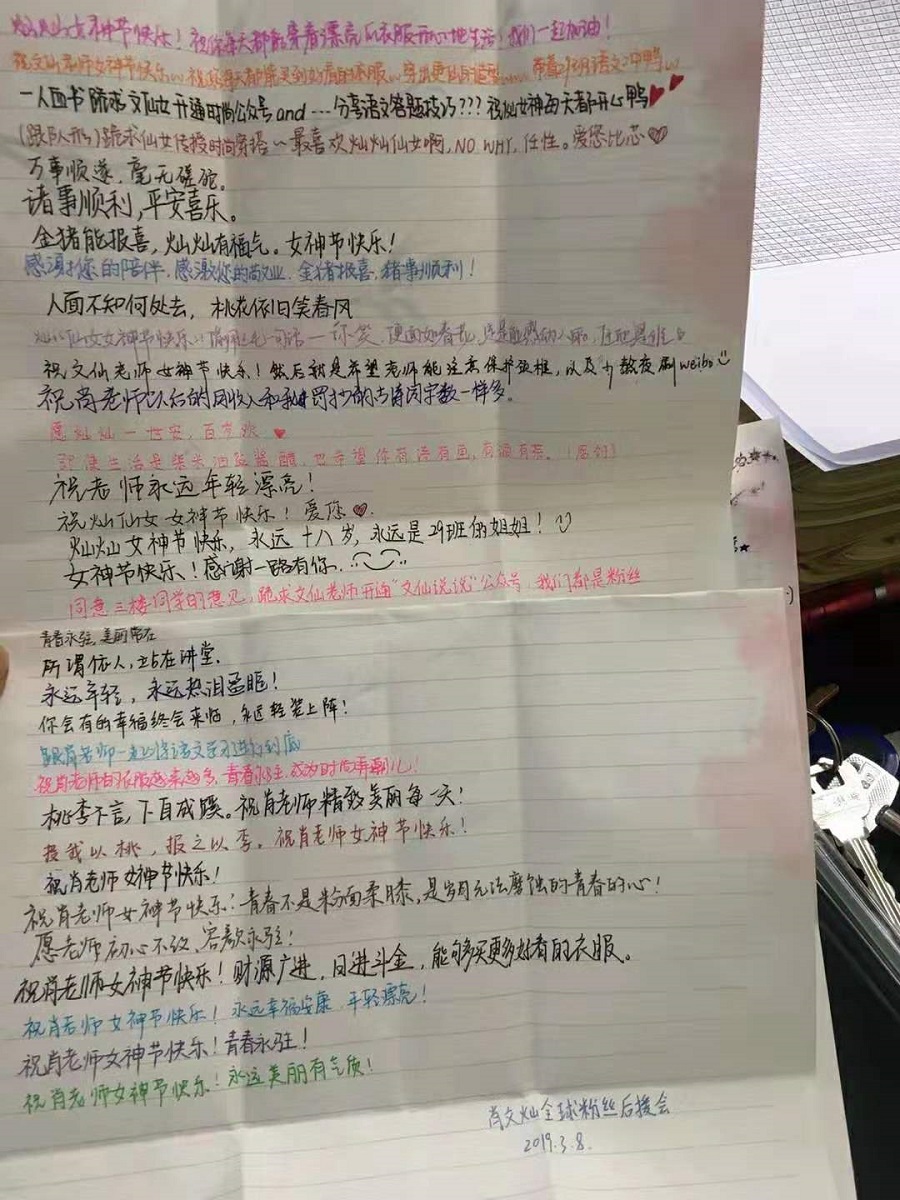 灿灿女神节快乐！祝你每天都能穿着漂亮的衣服开心地生活，我们一起加油！
祝文灿老师女神节快乐，祝每天都能买到好看的衣服，穿出更 带着29班语文冲鸭
一人血书跪求文仙女开通时尚公众号and……分享语文答题技巧???祝仙女神每天都开心鸭
(跟队形)跪求仙女传授时尚穿搭～最喜欢灿灿仙女啊,NO WHY,任性。爱您比芯
万事顺遂，毫无磋砣。
诸事顺利,平安喜乐。
金猪能报喜，灿灿有福气。女神节快乐!
感谢您的陪伴，感激您的敬业，金猪报喜，猪事顺利！
人面不知何处去，桃花依旧笑春风
灿灿仙女女神节快乐！ 一你笑，便面如春花，
祝文仙老师女神节快乐！然后就是希望老师能注意保护颈椎，以及少熬夜刷weibo
祝肖老师以后的回收入和我 罚抄的古诗词字数一样多。
愿灿灿一世安，百岁欢
即使生活是柴米油盐酱醋，也希望你有诗有画，有酒有茶。
祝老师永远年轻漂亮！
祝灿仙女女神节快乐！爱您
灿灿女神节快乐，永远十八岁，永远是29班的姐姐！
女神节快乐！感谢一路有你.
同意三楼同学的意见，跪求文仙老师开通"文仙说说"公众号，我们都是粉丝
青春永驻，美丽常在
所谓依人,站在讲堂.
永远年轻，永远热泪盈眶！
你会有的幸福终会来临，永远轻装上阵！
跟肖老师一起将语文学习进行到底
祝肖老师的衣服越来越多，青春永驻，成为时尚弄潮儿！
桃李不言，下自成蹊。祝肖老师精致美丽每一天！
投我以桃，报之以李。祝肖老师女神节快乐！
祝肖老师女神节快乐!
祝肖老师女神节快乐：青春不是粉面柔膝，是岁月无法磨蚀的青春的心！
愿老师初心不改，容颜永驻！
祝肖老师女神节快乐！财源广进，日进斗金，能够买更多好看的衣服。
祝肖老师女神节快乐！永远幸福安康，年轻漂亮！
祝肖老师女神节快乐！青春永驻！
祝肖老师女神节快乐！永远美丽有气质！
肖文灿全球粉丝后援会
2019.3.8.